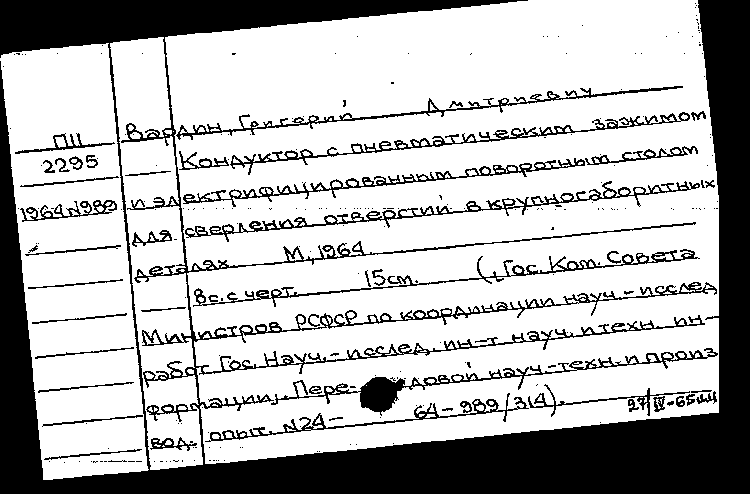 Вардин, Григорий Дмитриевич
ПII
2295
1964 N989
Кондуктор с пневматическим зажимом
и электрифицированным поворотным столом
для сверления отверстий в крупногаборитных
деталях. М., 1964.
8с. с черт. 15см. (, Гос. Ком. Совета
Министров РСФСР по координации науч.-исслед
работ Гос. Науч.-исслед. ин-т науч. и техн. ин-
формации,. Пере- довой науч.-техн. и произ
вод. опыт. N24- 64-989/314).
27/IV-65